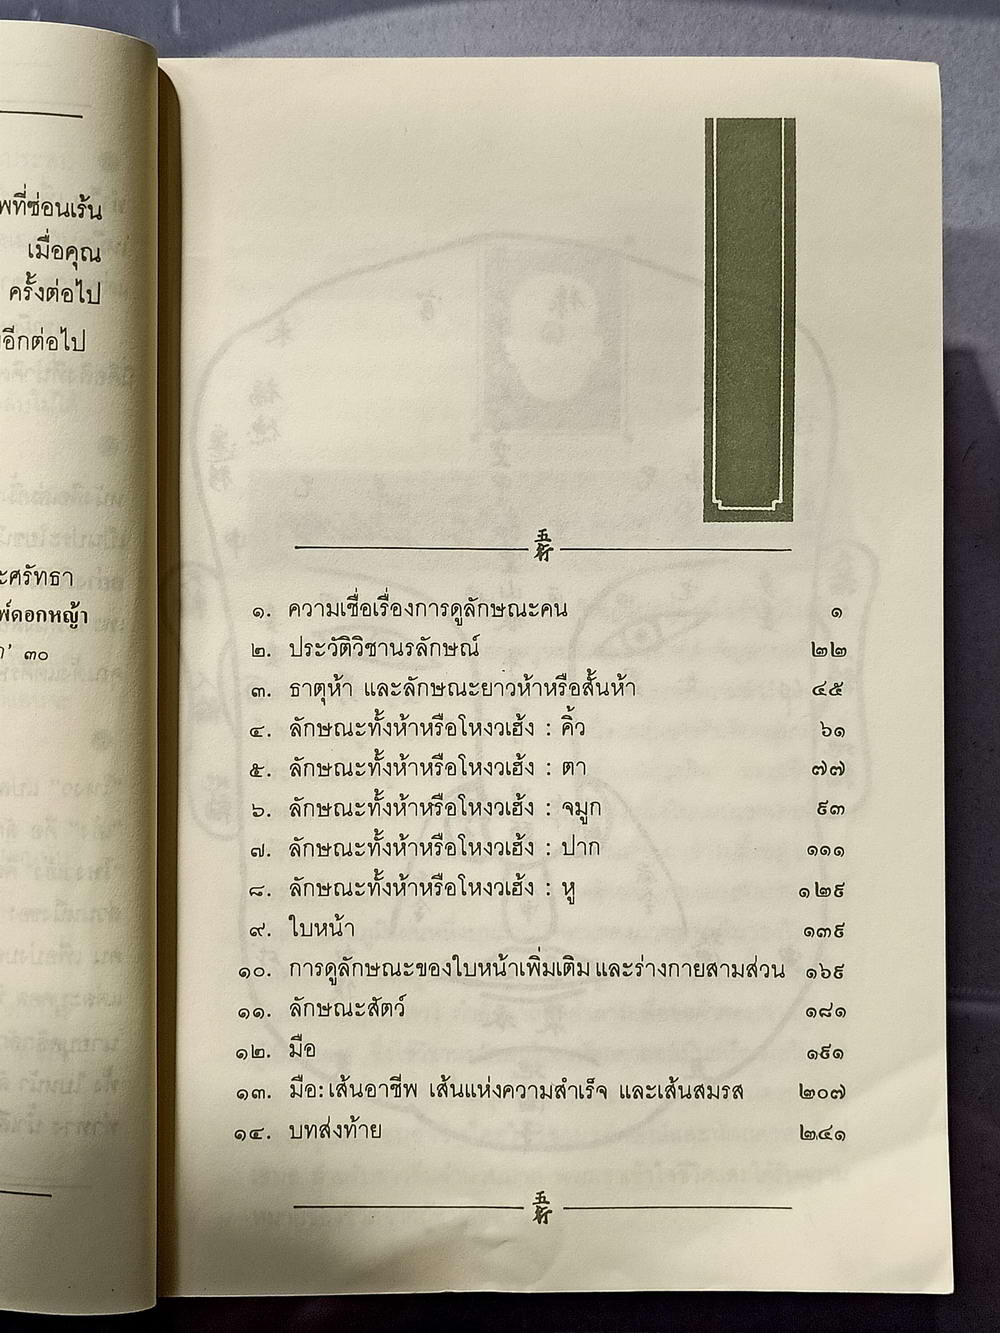 พที่ซ่อนเร้น
เมื่อคุณ
ครั้งต่อไป
อีกต่อไป
ะศรัทธา
พ์ดอกหญ้า
๓๐
五行
๑. ความเชื่อเรื่องการดูลักษณะคน ๑
๒. ประวัติวิชานรลักษณ์ ๒๒
๓. ธาตุห้า และลักษณะยาวห้าหรือสั้นห้า ๔๕
๔. ลักษณะทั้งห้าหรือโหงวเฮ้ง : คิ้ว ๖๑
๕. ลักษณะทั้งห้าหรือโหงวเฮ้ง : ตา ๗๗
๖. ลักษณะทั้งห้าหรือโหงวเฮ้ง : จมูก ๙๓
๗. ลักษณะทั้งห้าหรือโหงวเฮ้ง : ปาก ๑๑๑
๘. ลักษณะทั้งห้าหรือโหงวเฮ้ง : หู ๑๒๙
๙. ใบหน้า ๑๓๙
๑๐. การดูลักษณะของใบหน้าเพิ่มเติม และร่างกายสามส่วน ๑๖๙
๑๑. ลักษณะสัตว์ ๑๘๑
๑๒. มือ ๑๙๑
๑๓. มือ: เส้นอาชีพ เส้นแห่งความสำเร็จ และเส้นสมรส ๒๐๗
๑๔. บทส่งท้าย ๒๔๑
五行